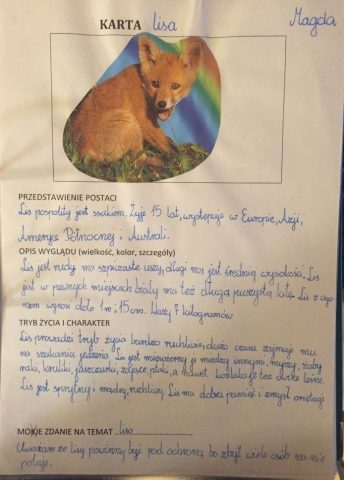 KARTA lisa
Magda
PRZEDSTAWIENIE POSTACI
Lis pospolity jest ssakiem. Żyje 15 lat, występuje w Europie, Azji,
Ameryce Północnej i Australi.
OPIS WYGLĄDU (wielkość, kolor, szczegóły)
Lis jest rudy ma szpiczaste uszy, długi nos jest średniej wysokości, Lis
jest w pewnych miejscach biały ma też długą puszystą kitę. Lis z ogo
nem wynosi około 1 m i 15 cm. Waży 7 kilogramów
TRYB ŻYCIA I CHARAKTER
Lis prowadzi tryb życia bardzo ruchliwe, dużo czasu zajmuje mu
na szukaniu jedzenia. Lis jest mięsożerny je między innymi, myszy, żaby
raki, króliki, jaszczurki, zające ptaki, a nawet koźlaka też owoce leśne.
Lis jest sprytny i mądry, ruchliwy. Lis ma dobrą pamięć i zmysł orientacji
MOKJE ZDANIE NA TEMAT lisa
Uważam że lisy powinny być pod ochroną bo zbyt wiele osób na nie
poluje.